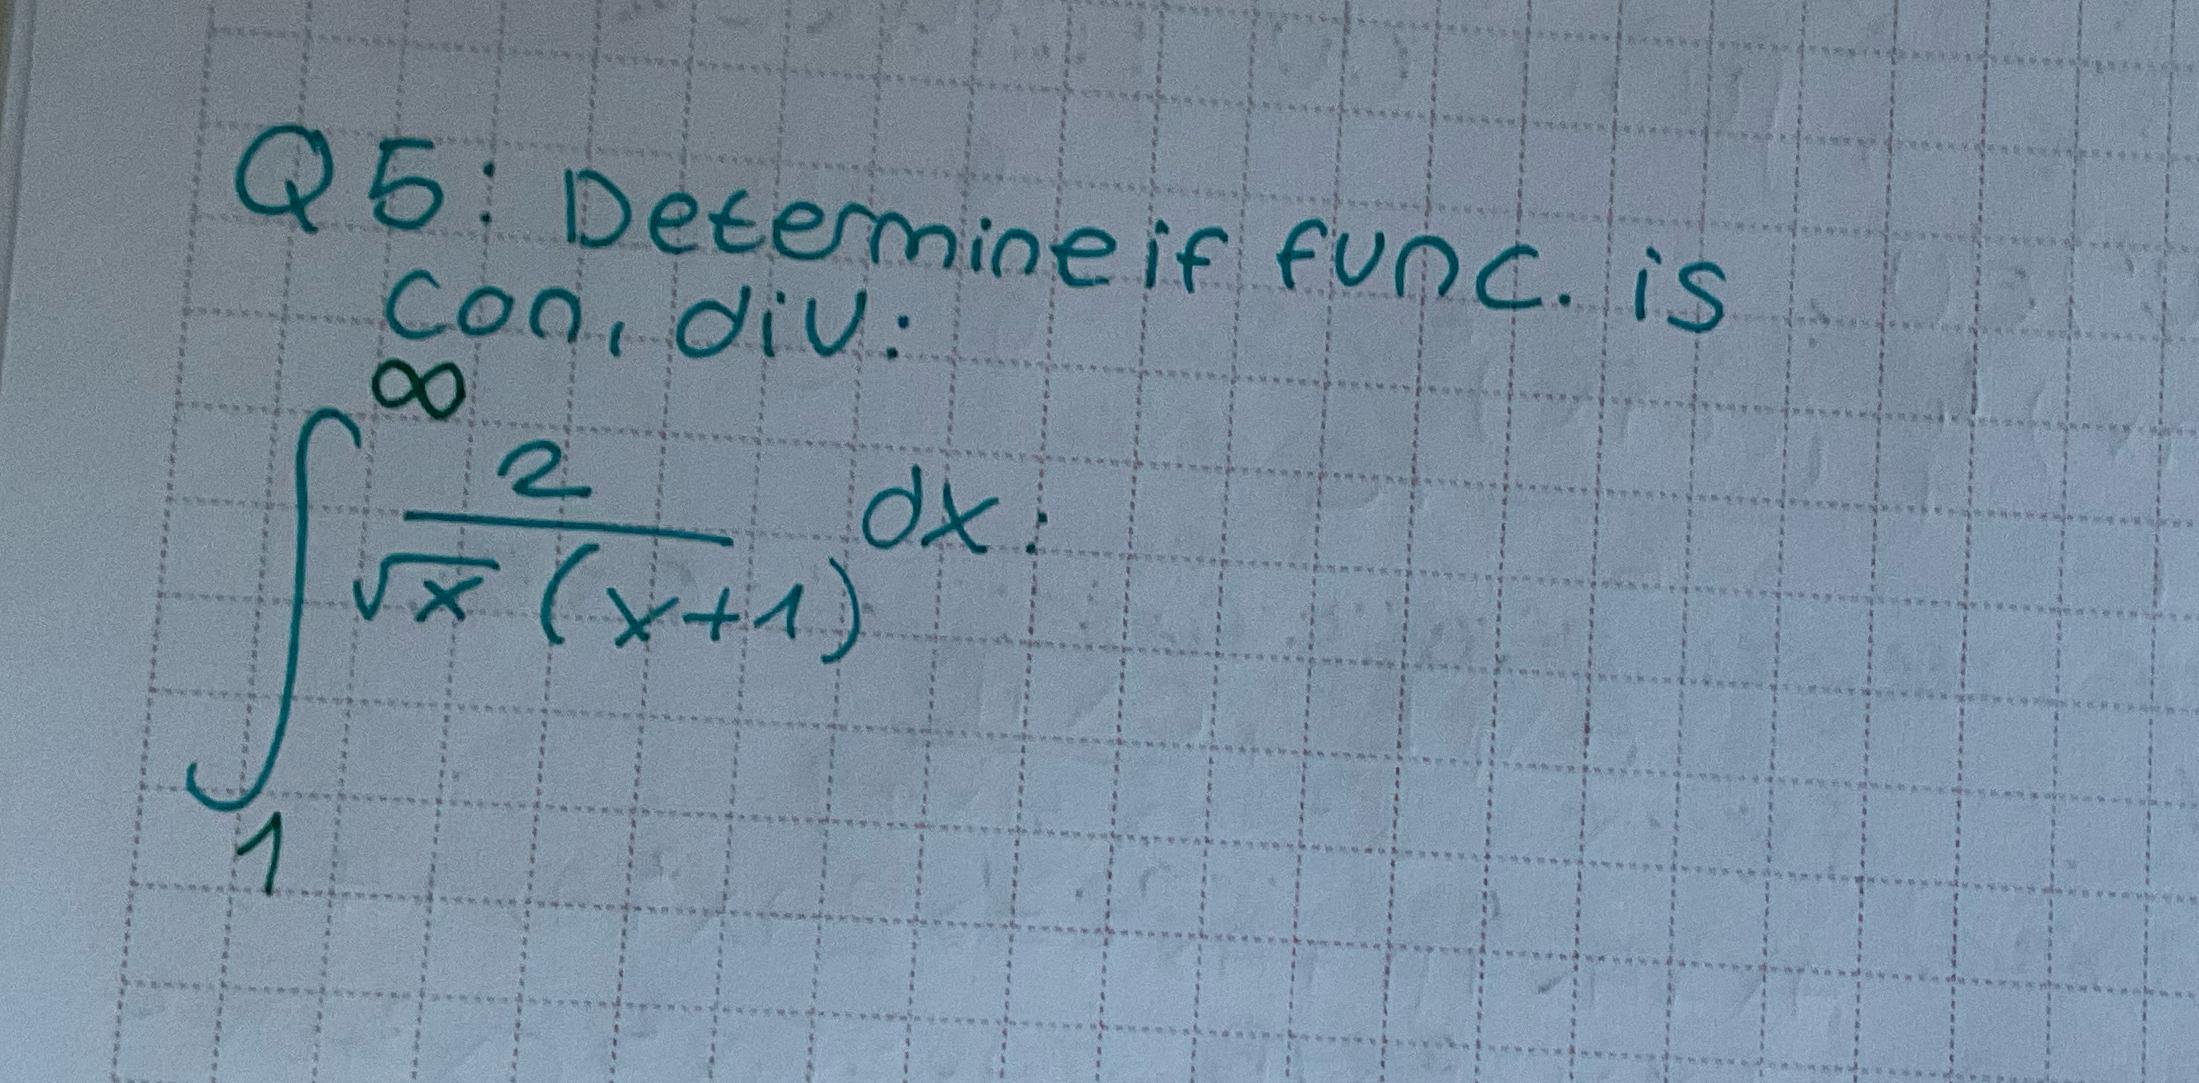 Q5: Determine if func. is
con, div:
∞
∫ 2 / √x (x+1) dx:
1